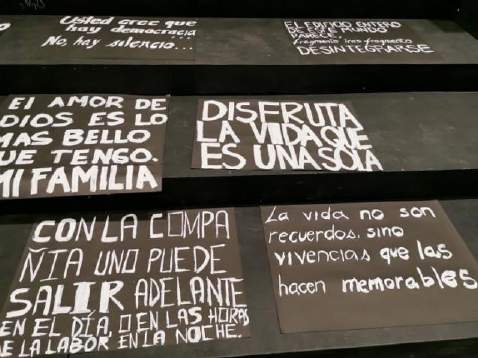 Usted cree que
hay democracia...
No, hay silencio...
EL EDIFICIO ENTERO
DE ESTE MUNDO
PARECE
fragmento tras fragmento
DESINTEGRARSE
El AMOR DE
DIOS ES LO
MAS BELLO
QUE TENGO.
MI FAMILIA
DISFRUTA
LA VIDA QUE
ES UNA SOLA
CON LA COMPA
ÑIA UNO PUEDE
SALIR ADELANTE
EN EL DÍA, O EN LAS HORAS
DE LA LABOR EN LA NOCHE.
La vida no son
recuerdos, sino
vivencias que las
hacen memorables